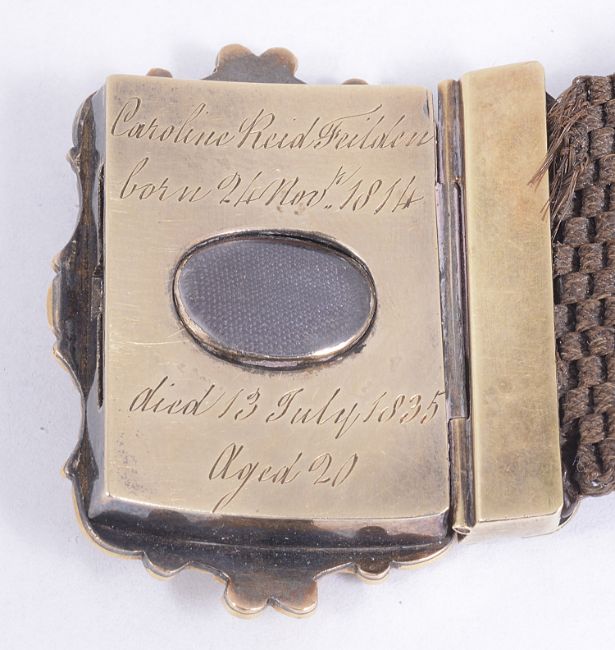 Caroline Reid Feilden
born 24 Novr. 1814
died 13 July 1835
Aged 20